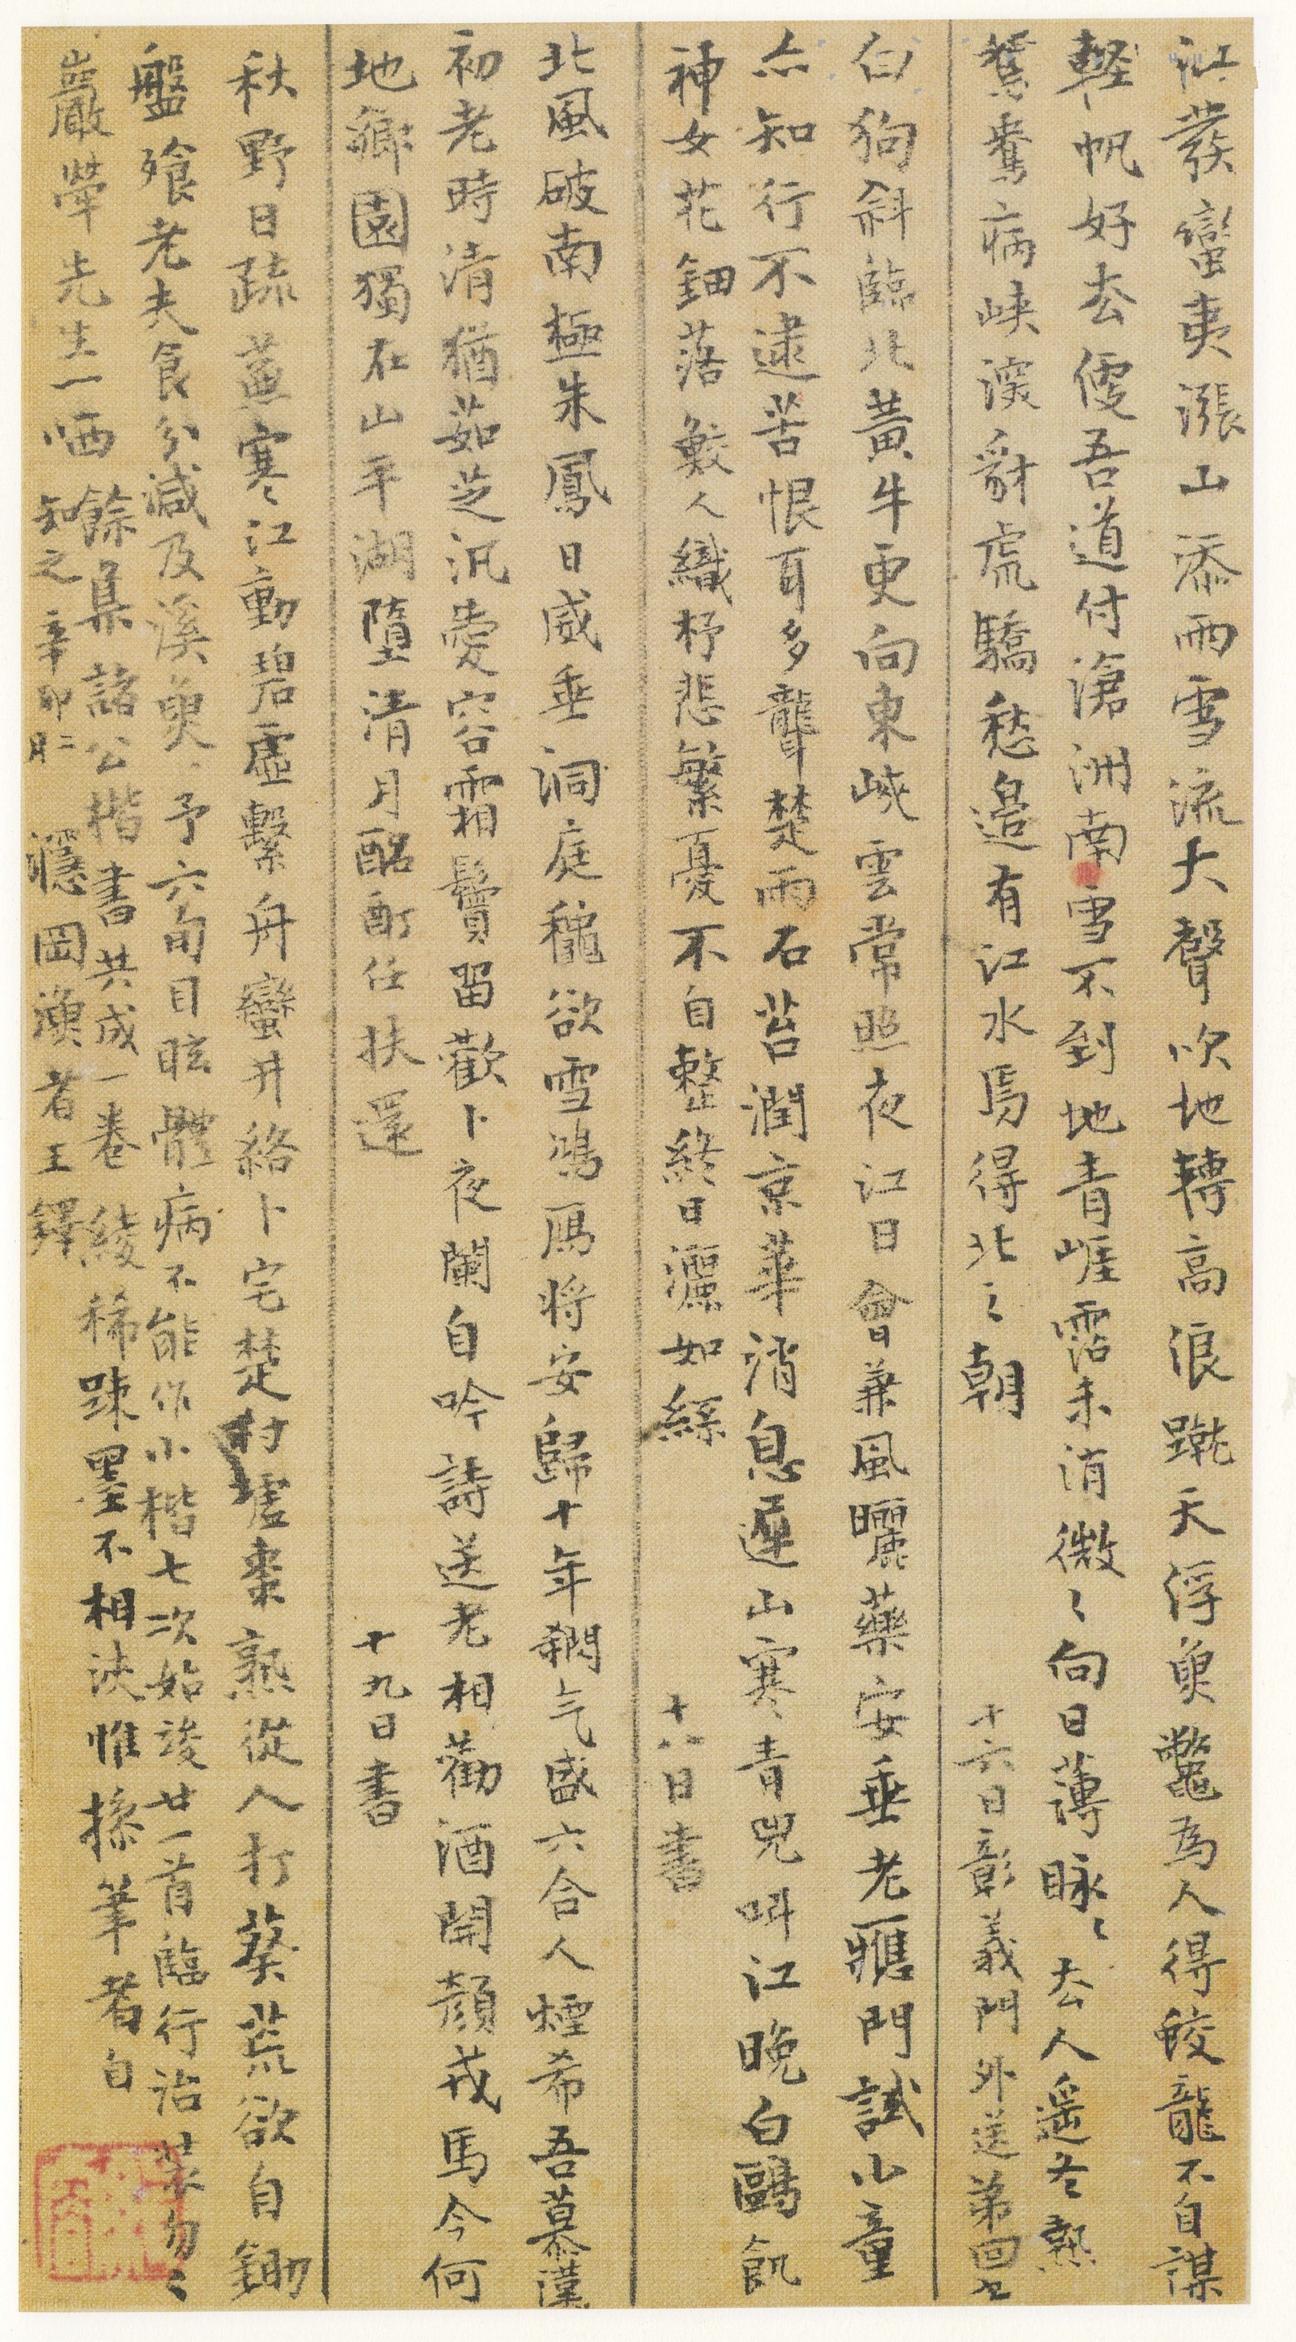 江發蠻夷漲山添雨雪流大聲吹地轉高浪蹴天浮魚鱉為人得蛟龍不自謀
輕帆好去便吾道付滄洲南雪不到地青崖霑未消微〻向日薄脉〻去人遥冬熱
鴛鴦病峽深豺虎驕愁邊有江水焉得北之朝 十六日彰義門外送弟回
白狗斜臨北黃牛更向東峽雲常照夜江日會兼風曬藥安垂老應門試小童
亦知行不逮苦恨耳多聾楚雨石苔潤京華消息遲山寒青兕叫江晚白鷗飢
神女花鈿落鮫人織杼悲繁憂不自整終日灑如絲 十八日書
北風破南極朱鳳日威垂洞庭秋欲雪鴻雁將安歸十年殺气盛六合人煙希吾慕漢
初老時清猶茹芝汎愛容霜鬢留歡卜夜闌自吟詩送老相勸酒開顏戎馬今何
地鄉園獨在山平湖墮清月酩酊任扶還 十九日書
秋野日疏蕪寒江動碧虛繫舟蠻井絡卜宅楚村墟棗熟從人打葵荒欲自鋤
盤飧老夫食分減及溪魚予六旬目眩體病不能作小楷七次始竣廿一首臨行治裝匆〻
餘集諸公楷書共成一卷綾稀踈墨不相浹惟操筆者自
知之辛卯二月
巖犖先生一哂 㶏岡漁者王鐸